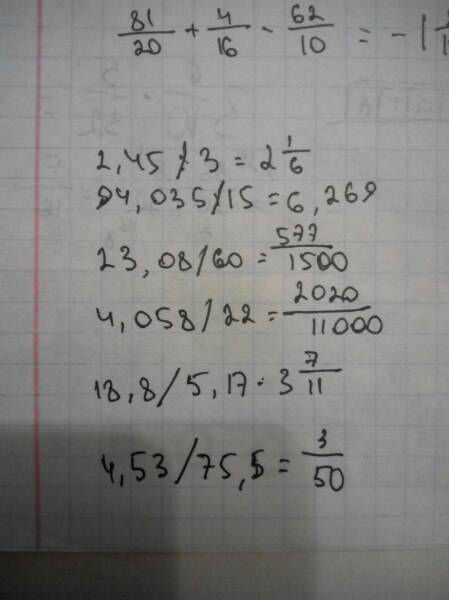 81/20 + 4/16 - 62/10 = - 1
2,45 / 3 = 2 1/6
94,035/15 = 6,269
23,08/60 = 577/1500
4,058/22 = 2020/11000
18,8/5,17 · 3 7/11
4,53/75,5 = 3/50